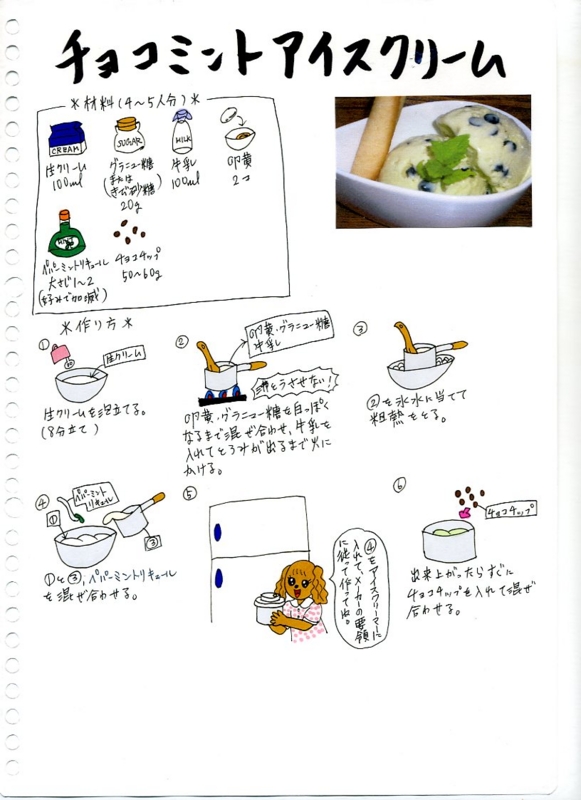 チョコミントアイスクリーム
*材料(4〜5人分)*
CREAM
生クリーム
100ml
SUGAR
グラニュー糖
(または
きび砂糖)
20g
MILK
牛乳
100ml
卵黄
2コ
MINT
ペパーミントリキュール
大さじ1〜2
(好みで加減)
チョコチップ
50〜60g
*作り方*
①
生クリーム
生クリームを泡立てる。
(8分立て)
②
卵黄・グラニュー糖
牛乳
沸とうさせない!
卵黄・グラニュー糖を白っぽく
なるまで混ぜ合わせ、牛乳を
入れてとろみが出るまで火に
かける。
③
②を氷水に当てて
粗熱をとる。
④
ペパーミント
リキュール
①
③
①と③、ペパーミントリキュール
を混ぜ合わせる。
⑤
④をアイスクリーマーに
入れて、メーカーの要領
に従って作ってね。
⑥
チョコチップ
出来上がったらすぐに
チョコチップを入れて混ぜ
合わせる。